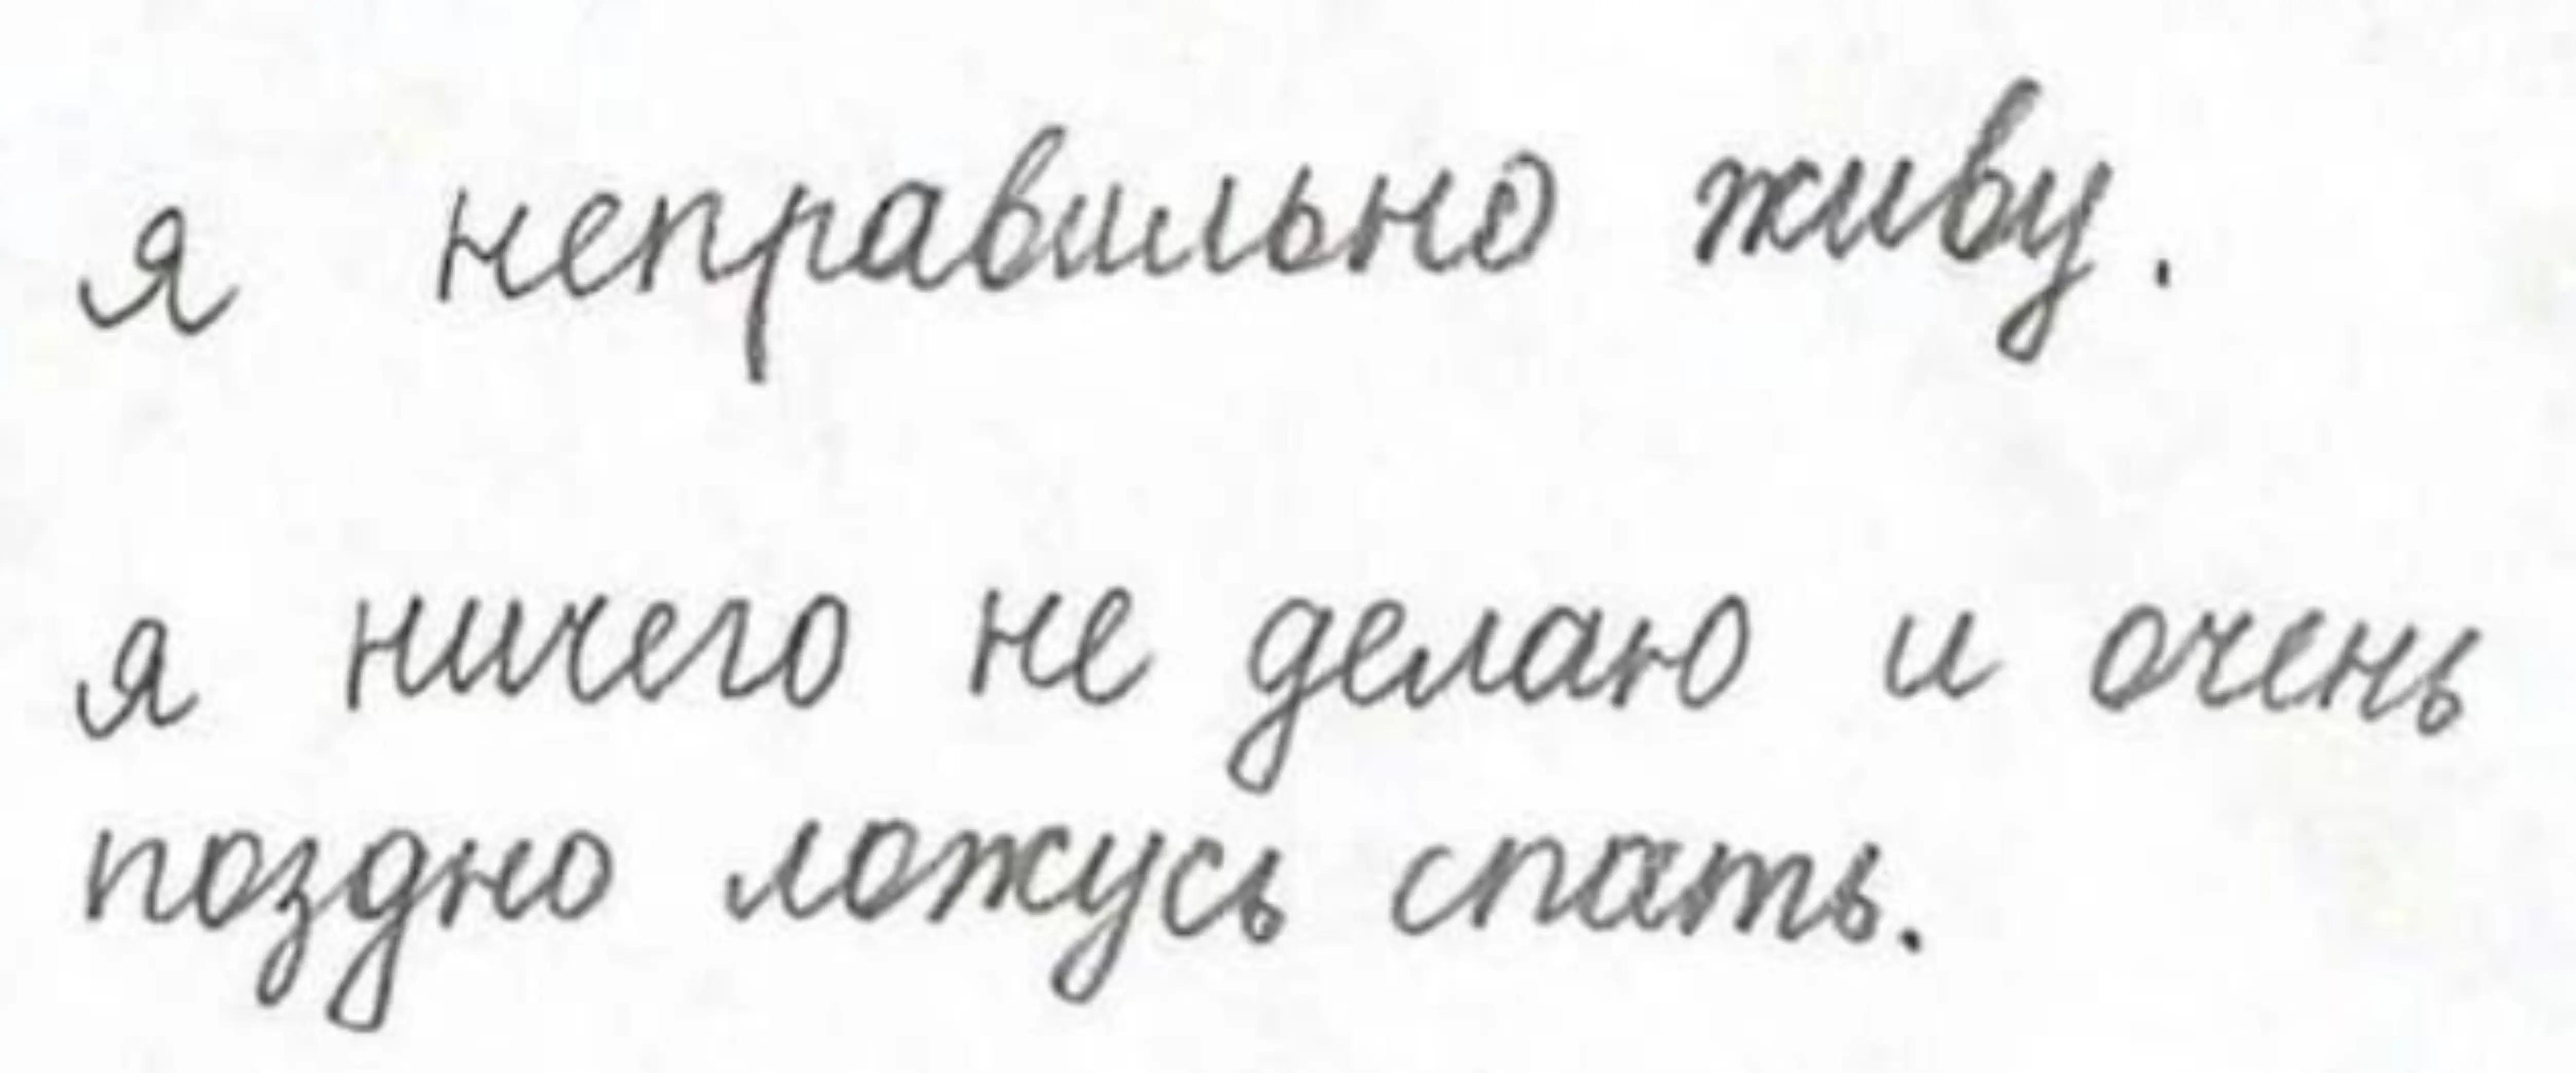 я неправильно живу.
я ничего не делаю и очень
поздно ложусь спать.